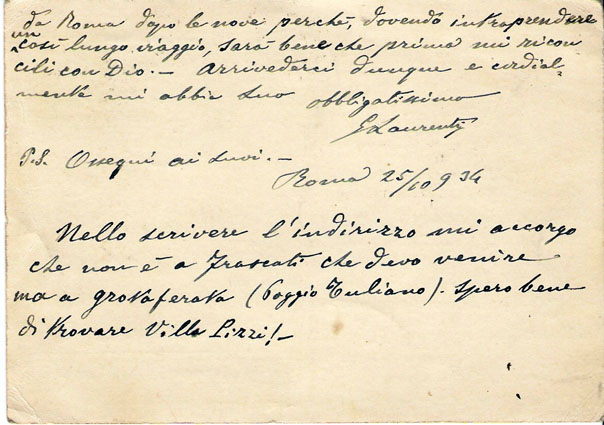 da Roma dopo le nove perchè, dovendo intraprendere
un
così lungo viaggio, sarà bene che prima mi ricon
cili con Dio. — Arrivederci dunque e cordial
mente mi abbia suo obbligatissimo
GLaurenti
P.S. Ossequi ai suoi. —
Roma 25/10 934
Nello scrivere l'indirizzo mi accorgo
che non è a Frascati che devo venire
ma a grottaferrata (Poggio Tuliano). Spero bene
di trovare Villa Lizzi! —